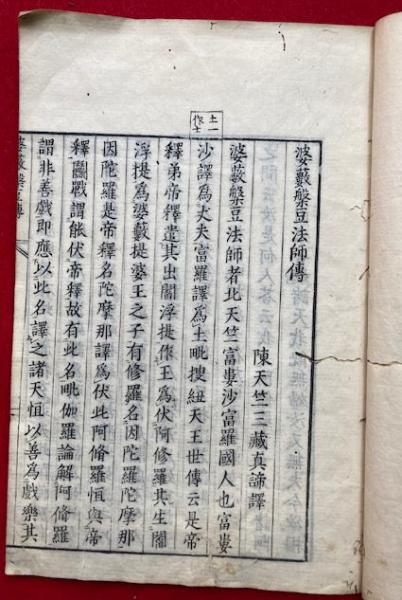 土一
作士
婆藪槃豆法師傳
陳天竺三藏真諦譯
婆藪槃豆法師者北天竺富婁沙富羅國人也富婁
沙譯爲丈夫富羅譯爲土毗搜紐天王世傳云是帝
釋弟帝釋遣其出閻浮提作王爲伏阿修羅其生閻
浮提爲婆藪提婆王之子有修羅名因陀羅陀摩那
因陀羅是帝釋名陀摩那譯爲伏此阿脩羅恒與帝
釋鬬戰謂能伏帝釋故有此名毗伽羅論解阿脩羅
謂非善戲即應以此名譯之諸天恒以善爲戲樂其
婆藪槃豆傳